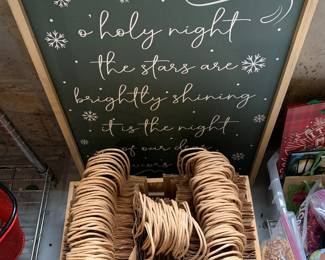 o' holy night
the stars are
brightly shining
it is the night
of our dear